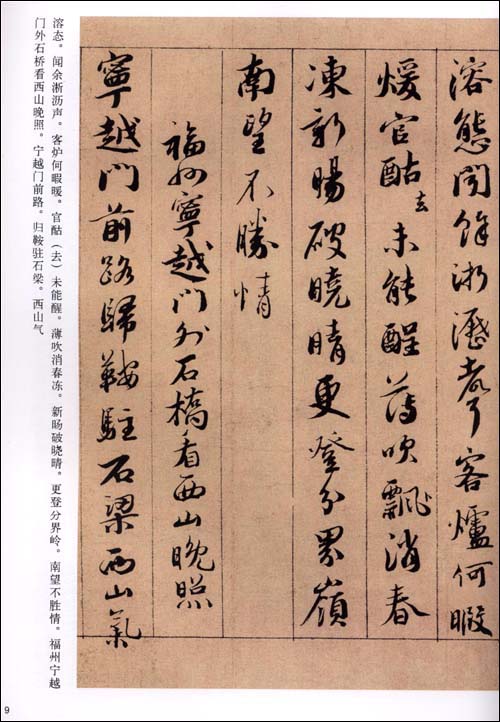 溶態聞餘淅瀝聲客爐何暇
煖官酤去未能醒薄吹飄消春
凍新暘破曉晴更登分界嶺
南望不勝情
福州寧越門外石橋看西山晚照
寧越門前路歸鞍駐石梁西山氣
溶态。闻余淅沥声。客炉何暇暖。官酤（去）未能醒。薄吹消春冻。新旸破晓晴。更登分界岭。南望不胜情。福州宁越
门外石桥看西山晚照。宁越门前路。归鞍驻石梁。西山气
9